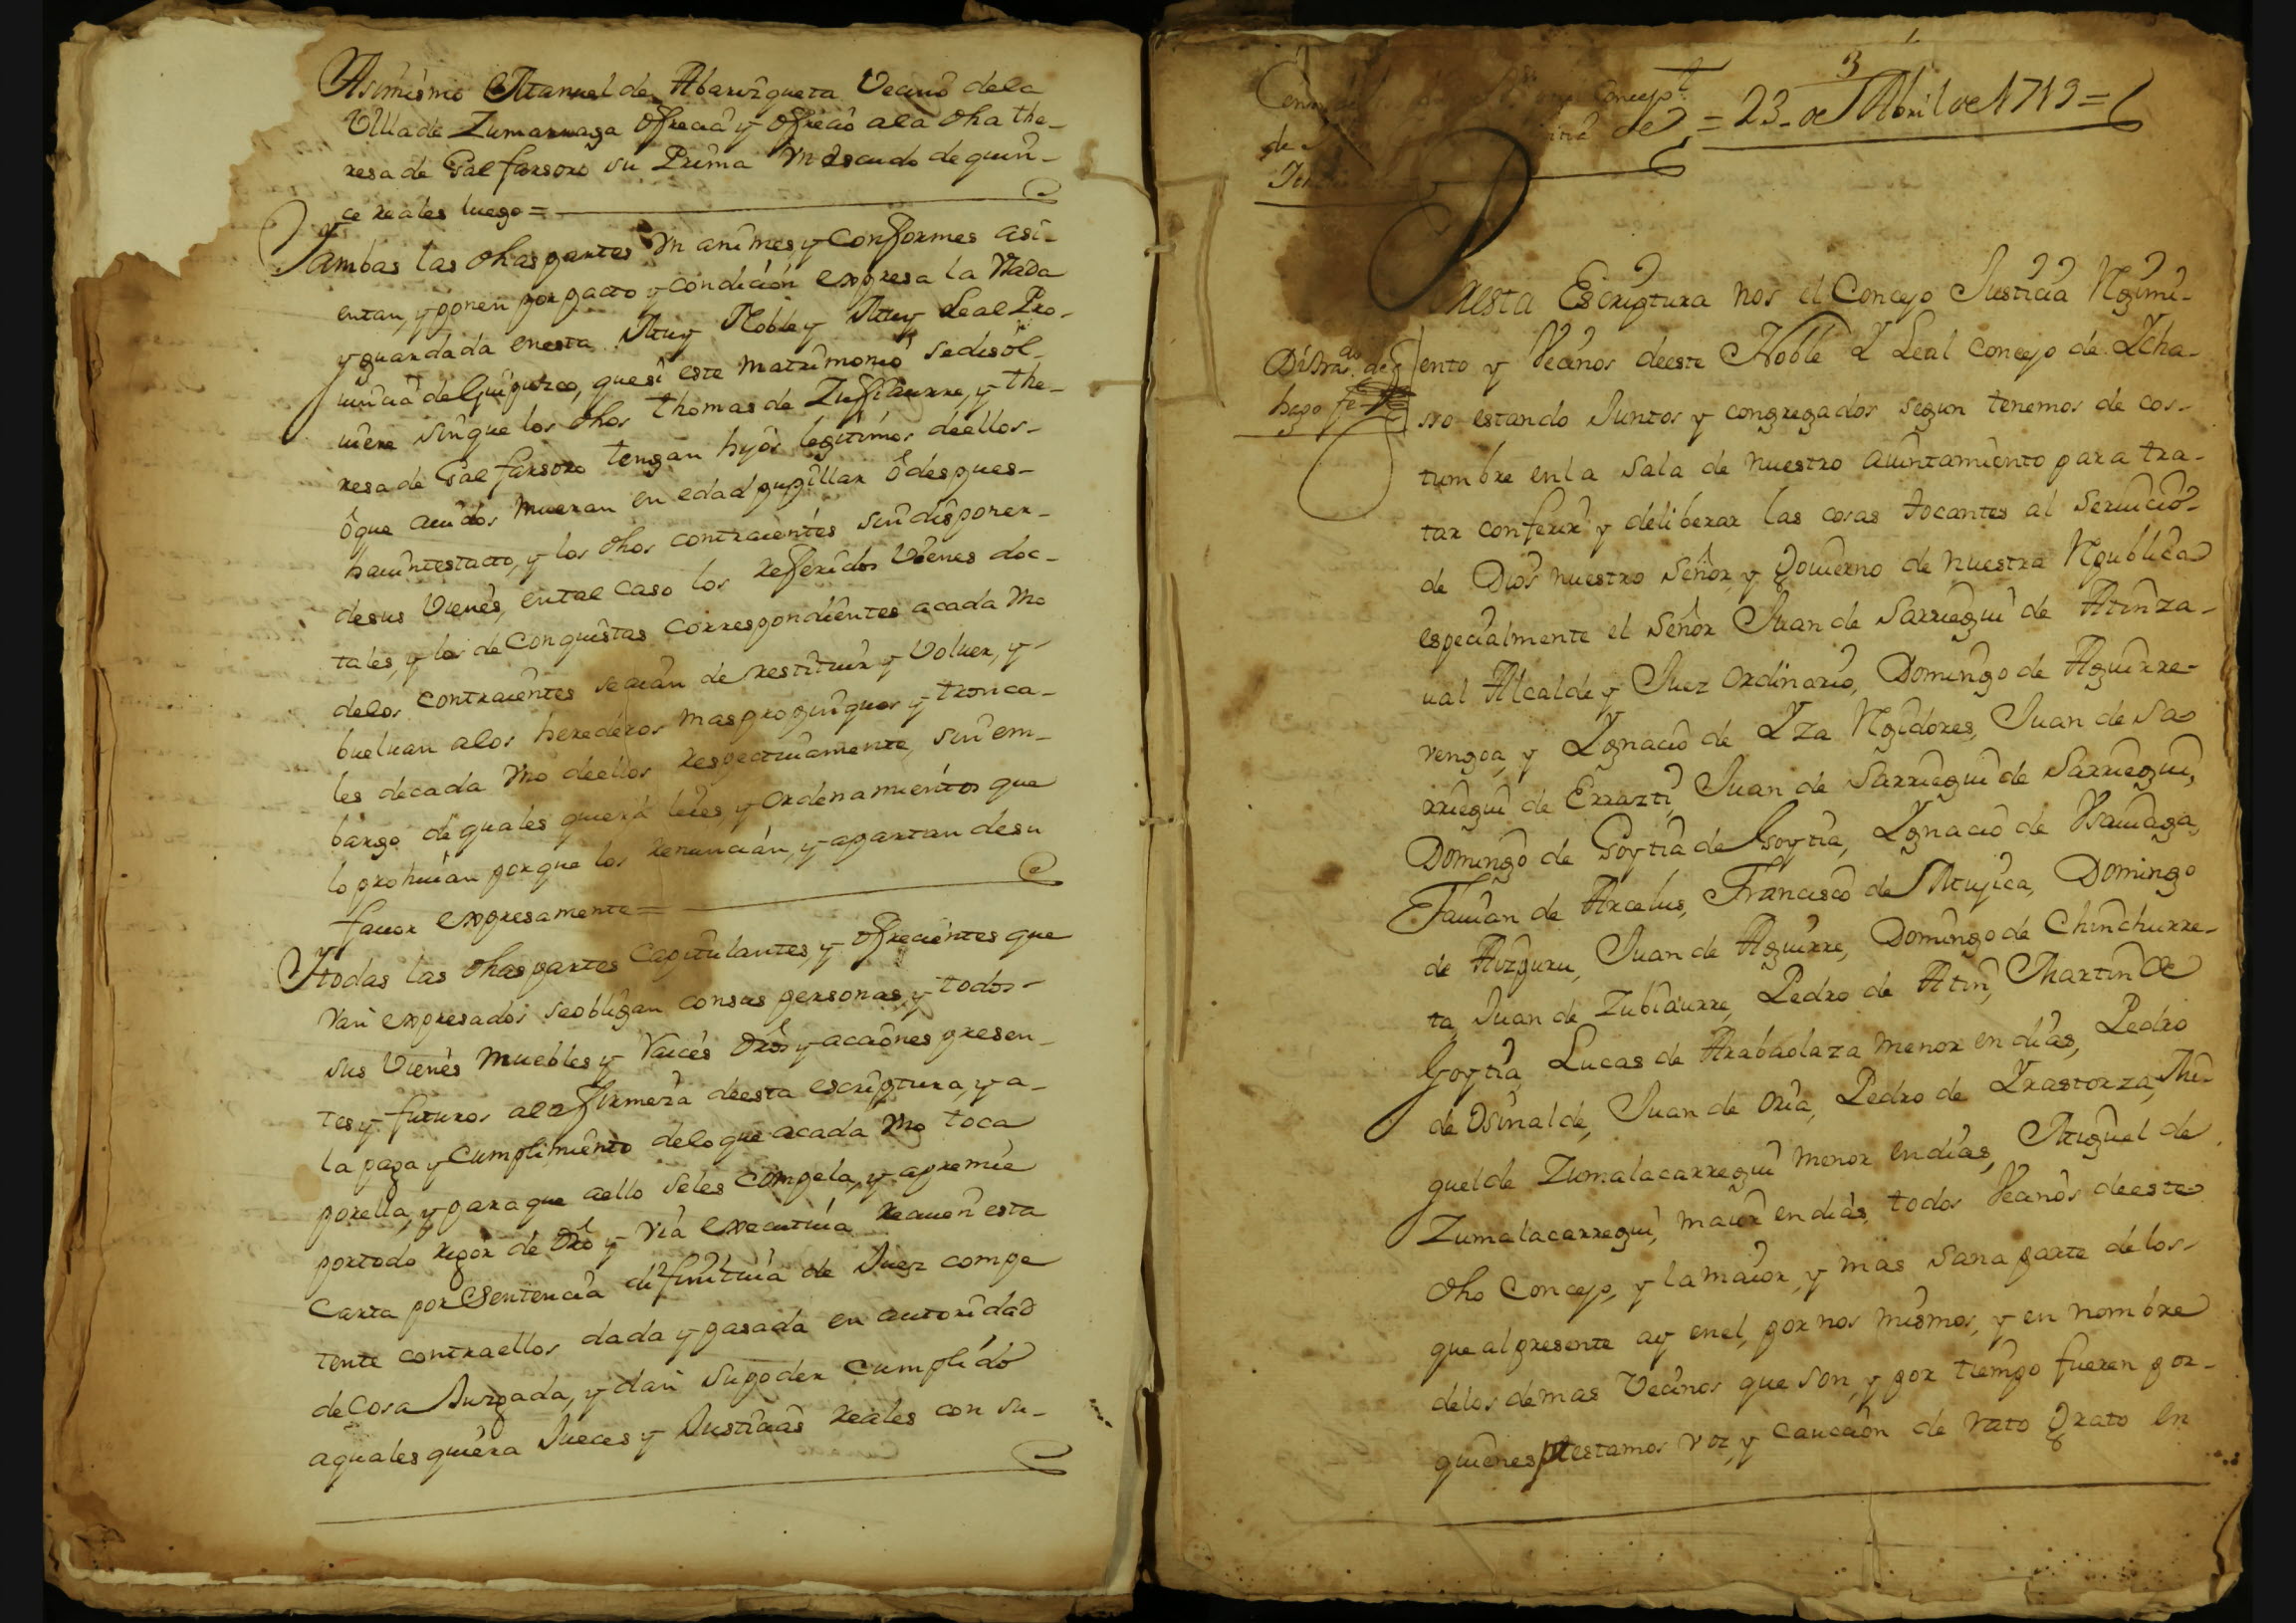 Asimismo Manuel de Abarizqueta Vecino dela
Villa de Zumarraga ofrecia y ofrecio ala dha the-
resa de Galfarsoro su Prima Vn escudo de quin-
ce reales luego =
Y ambas las dhas partes Vn animes, y Conformes asi-
entan, y ponen por pacto y condicion expresa la Vsada
y guardada en esta Muy Noble y Muy Leal Pro-
uincia de Guipuzcoa, que si este matrimonio se disol-
uiere sin que los dhos Thomas de Zufiaurre, y the-
resa de Galfarsoro tengan hijos legitimos de ellos-
ô que auidos mueran en edad pupillar ô despues-
hauintestacto, y los dhos contraientes sin disponer-
de sus Vienes, en tal caso los referidos Vienes doc-
tales, y los de Conquistas correspondientes acada Vno
delos contraientes se aian de restituir y Voluer, y-
bueluan alos herederos mas propinquos y tronca-
les de cada Vno de ellos respectiuamente, sin em-
bargo de quales quiera leies, y ordenamientos que
lo prohiuian porque los renuncian, y apartan de su
fauor expresamente =
Y todas las dhas partes Capitulantes, y ofrecientes que
Van expresados se obligan con sus personas, y todos-
sus Vienes muebles y Raices dros y acciones presen-
tes y futuros ala firmeza de esta escriptura, y a-
la paga y Cumplimiento delo que acada Vno toca
por ella, y para que a ello se les compela, y apremie
por todo rigor de dro y via executiua reciuen esta
Carta por Sentencia difinitiua de Juez compe
tente contra ellos dada y pasada en autoridad
de Cosa Juzgada, y dan su poder Cumplido
a quales quiera Jueces y Justicias reales con su-
= 23 de Abril de 1719 =
esta Escriptura nos el Concejo Justicia Regimi-
ento y Vecinos de este Noble Y Leal Concejo de Ycha-
hago fe
sso estando Juntos y congregados segun tenemos de cos-
tumbre en la sala de nuestro aiuntamiento para tra-
tar conferir y deliberar las cosas tocantes al seruicio
de Dios nuestro señor, y Gouierno de nuestra Republica
especialmente el señor Juan de Sarriegui de Atinza-
ual Alcalde y Juez ordinario, Domingo de Aguirre-
rengoa, y Ygnacio de Yza Regidores, Juan de Sa
rriegui de Errazti, Juan de Sarriegui de Sarriegui,
Domingo de Goytia de Goytia, Ygnacio de Vsauiaga,
Fauian de Arcelus, Francisco de Mujica, Domingo
de Aizpuru, Juan de Aguirre, Domingo de Chinchurre-
ta, Juan de Zubiaurre, Pedro de Atin, Martin de
Goytia, Lucas de Arabaolaza menor en dias, Pedro
de Osinalde, Juan de Oria, Pedro de Yrastorza, Mi-
guel de Zumalacarregui menor en dias, Miguel de
Zumalacarregui, maior en dias, todos Vecinos de este
dho Concejo, y la maior, y mas sana parte delos-
que al presente ay en el, por nos mismos, y en nombre
delos demas Vecinos que son, y por tiempo fueren por-
quienes prestamos voz, y caucion de rato Grato en